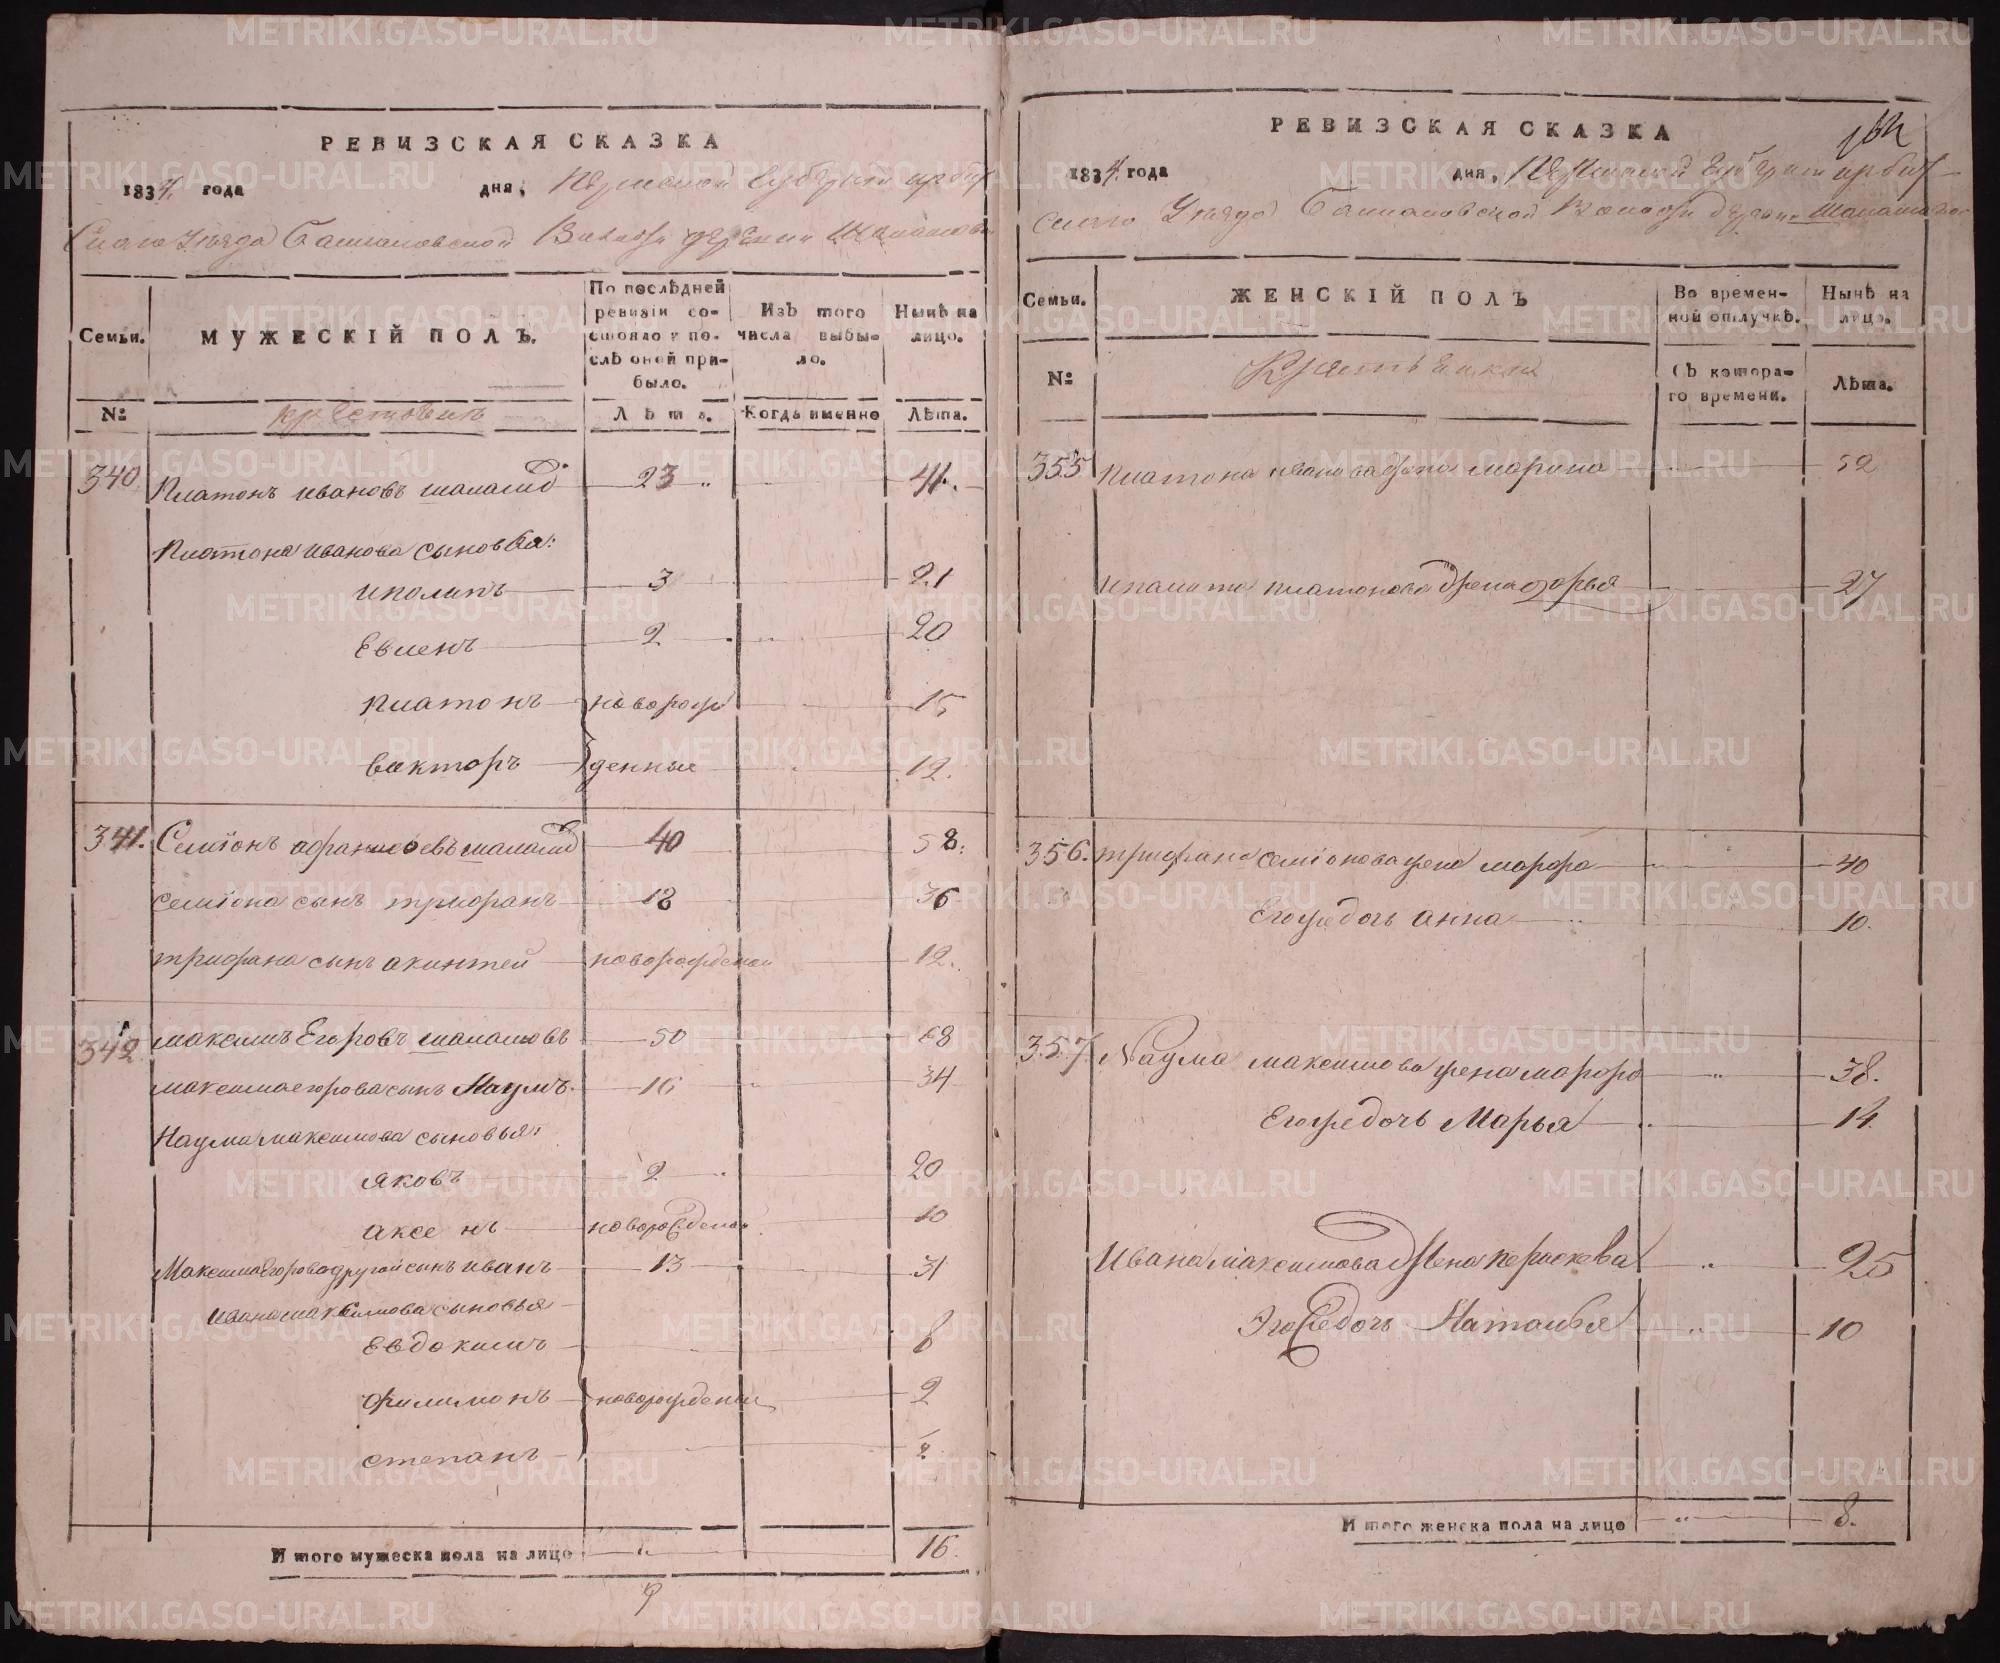 РЕВИЗСКАЯ СКАЗКА
1834. года дня, Пермской Губернии ирбит
Скаго Уезда Башмаковской Волости деревни Шаламова
Семьи.
МУЖЕСКІЙ ПОЛЪ.
По послѣдней ревизіи состояло и послѣ оной прибыло.
Изъ того числа выбыло.
Нынѣ на лицо.
№
крестьянъ
Лѣта. Когда именно Лѣта.
340 Платонъ ивановъ шалам 23 41.
Платона иванова сыновья:
иполитъ 3 21
Евменъ 2 20
платонъ новорож 15
викторъ денные 12.
341. Семіонъ афанасьевъ шалам 40 58.
семіона сынъ трифанъ 18 36
трифана сынъ акинтей новорожденой 12.
342 максимъ Егоровъ шаламовъ 50 68
максима егорова сынъ Наумъ. 16 34
Наума максимова сыновья:
яковъ 2 20
аксенъ новорожденой 10
Максима Егорова другой сынъ иванъ 13 31
ивана максимова сыновья
Евдокимъ 6
филимонъ новорожденые 2
степанъ
Итого мужеска пола на лицо 16.
РЕВИЗСКАЯ СКАЗКА
1834. года дня, Пермской Губернии ирбит
скаго Уезда Башмаковской Волости деревни Шаламова
Семьи.
ЖЕНСКІЙ ПОЛЪ
Во временной отлучкѣ.
Нынѣ на лицо.
№
Съ котораго времени.
Лѣта.
355 Платона иванова жена марина 52
иполита платонова жена дарья 27
356. трифана семіонова жена марфа 40
Егождочь анна 10.
357. Наума максимова жена марфа 38.
Егождочь Марья 14.
Ивана максимова жена пераскева 25
Эгождочь Наталья 10
Итого женска пола на лицо 8.
METRIKI.GASO-URAL.RU